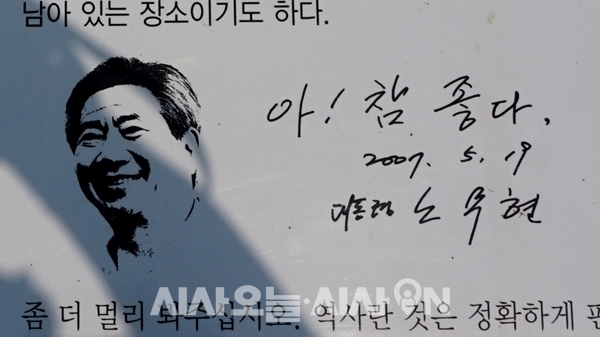 남아 있는 장소이기도 하다.
아! 참 좋다.
2007. 5. 19
대통령 노무현
시사오늘·시사ON
좀 더 멀리 봐주십시오. 역사란 것은 정확하게 편